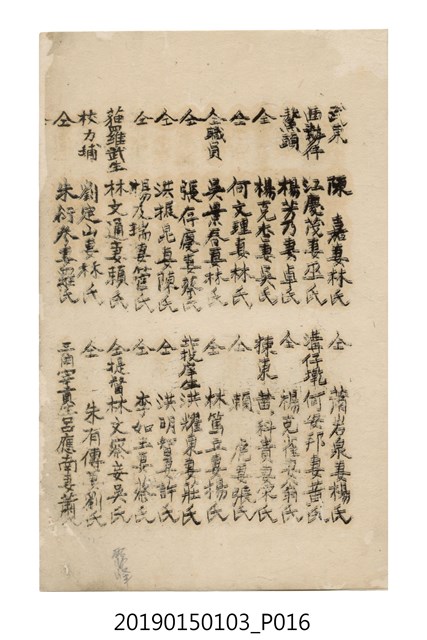 武東 陳嘉妻林氏 仝 蕭岩泉妻楊氏
江慶茂妻巫氏 溝仔墘 何安邦妻黃氏
楊芳乃妻卓氏 仝 楊克
仝 楊克 妻吳氏 揀東 黃科貴妻
仝 何文理妻林氏 仝 賴 妻張氏
仝職員 吳景春妻林氏 仝 林篤 妻楊氏
仝 張存慶妻蔡氏 洪耀東妻莊氏
仝 洪 晃妻陳氏 仝 洪明智妻許氏
仝 楊 瑞妻 氏 仝 李如玉妻蔡氏
猫羅武生 林文通妻賴氏 仝提督 林文察妾吳氏
校力埔 劉定山妻林氏 仝 朱有傳妻劉氏
仝 朱衍 妻羅氏 呂應南妻蕭氏
20190150103_P016